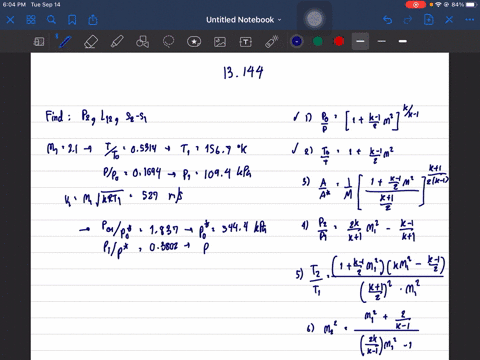 6:04 PM Tue Sep 14
84%
Untitled Notebook
13.144
Find: P2, L12, s2-s1
M1 = 2.1 → T/T0 = 0.5314 → T1 = 156.7 °K
P/P0 = 0.1094 → P1 = 109.4 kPa
V1 = M1 √kRT1 = 527 m/s
→ P01/P0* = 1.837 → P0* = 544.4 kPa
P1/P* = 0.3802 → P
✓ 1) P0/P = [1 + k-1/2 M²]^k/k-1
✓ 2) T0/T = 1 + k-1/2 M²
3) A/A* = 1/M [1 + k-1/2 M² / k+1/2]^k+1/2(k-1)
4) P2/P1 = 2k/k+1 M1² - k-1/k+1
5) T2/T1 = (1 + k-1/2 M1²)(kM1² - k-1/2) / (k+1/2)² · M1²
6) M2² = M1² + 2/k-1 / (2k/k-1)M1² - 1